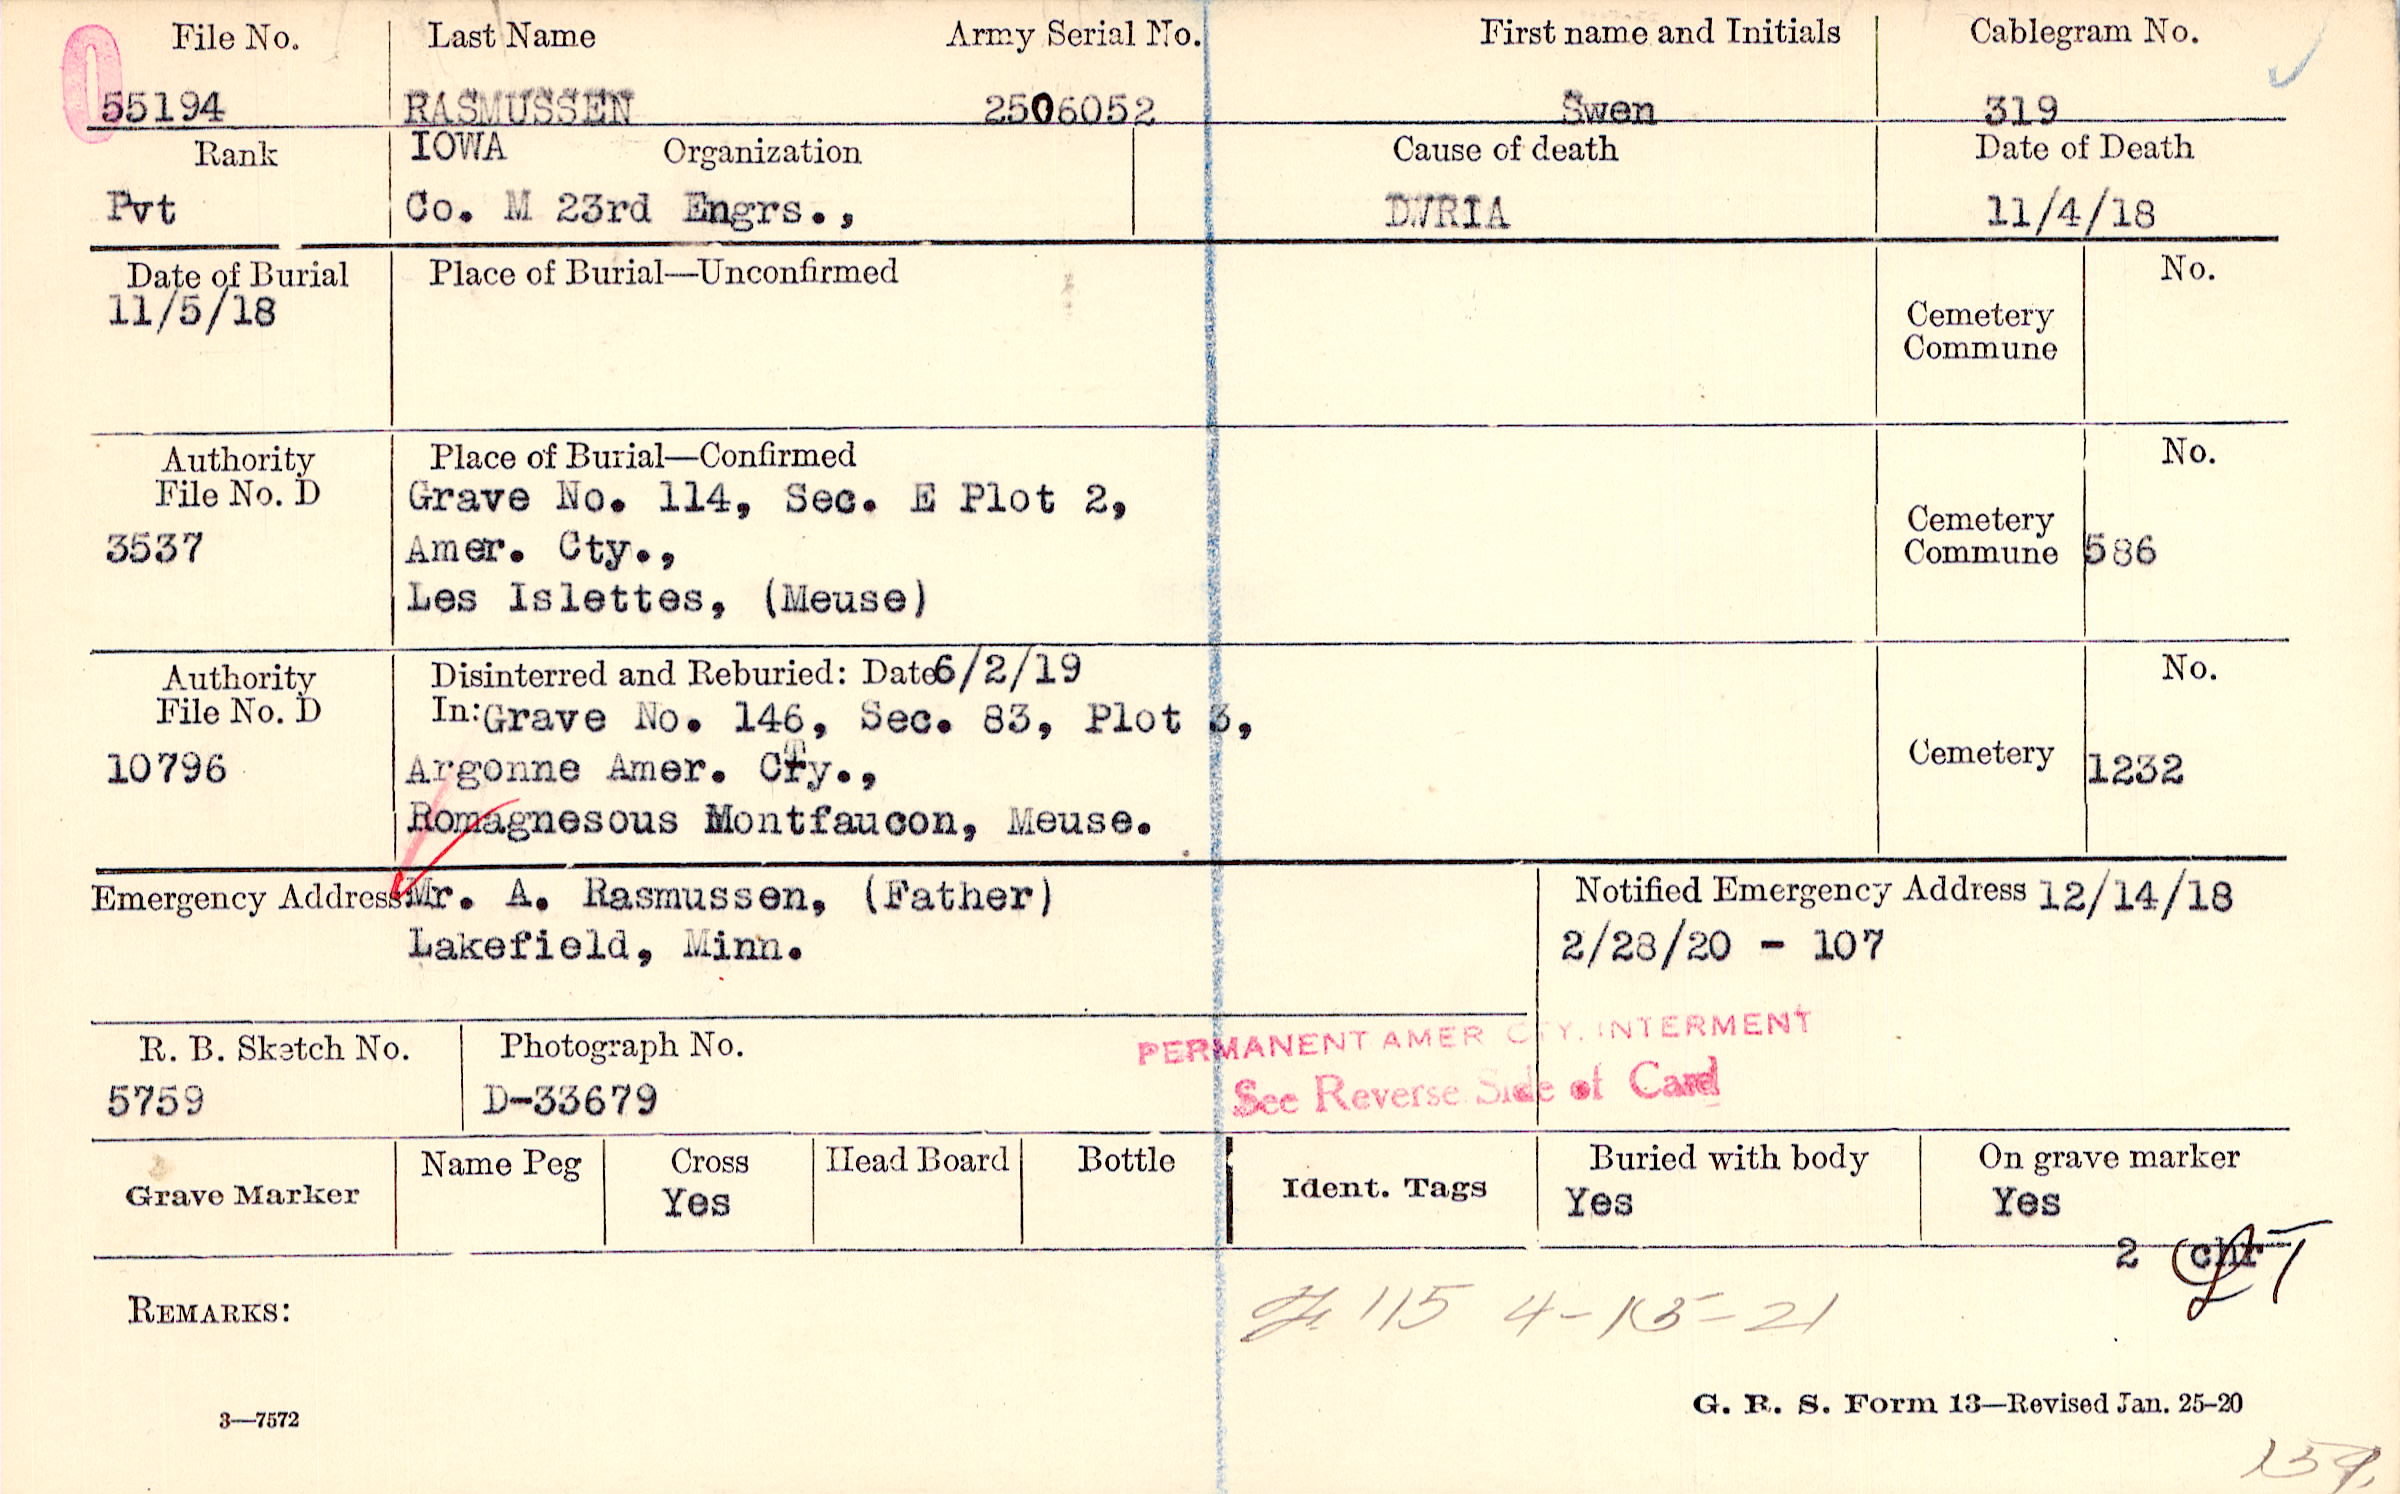 File No. Last Name Army Serial No. First name and Initials Cablegram No.
0
55194 RASMUSSEN 2506052 Swen 319
Rank IOWA Organization Cause of death Date of Death
Pvt Co. M 23rd Engrs., DWRIA 11/4/18
Date of Burial Place of Burial—Unconfirmed No.
11/5/18
Cemetery
Commune
Authority Place of Burial—Confirmed No.
File No. D Grave No. 114, Sec. E Plot 2,
Cemetery
3537 Amer. Cty., Commune 586
Les Islettes, (Meuse)
Authority Disinterred and Reburied: Date 6/2/19 No.
File No. D In: Grave No. 146, Sec. 83, Plot 3,
10796 Argonne Amer. Cty., Cemetery 1232
Romagnesous Montfaucon, Meuse.
Emergency Address: Mr. A. Rasmussen, (Father) Notified Emergency Address 12/14/18
Lakefield, Minn. 2/28/20 - 107
PERMANENT AMER CTY. INTERMENT
R. B. Sketch No. Photograph No.
See Reverse Side of Card
5759 D-33679
Name Peg Cross Head Board Bottle Buried with body On grave marker
Grave Marker Yes Ident. Tags Yes Yes
2 chr
REMARKS: 115 4-15-21
3—7572 G. R. S. Form 13—Revised Jan. 25-20